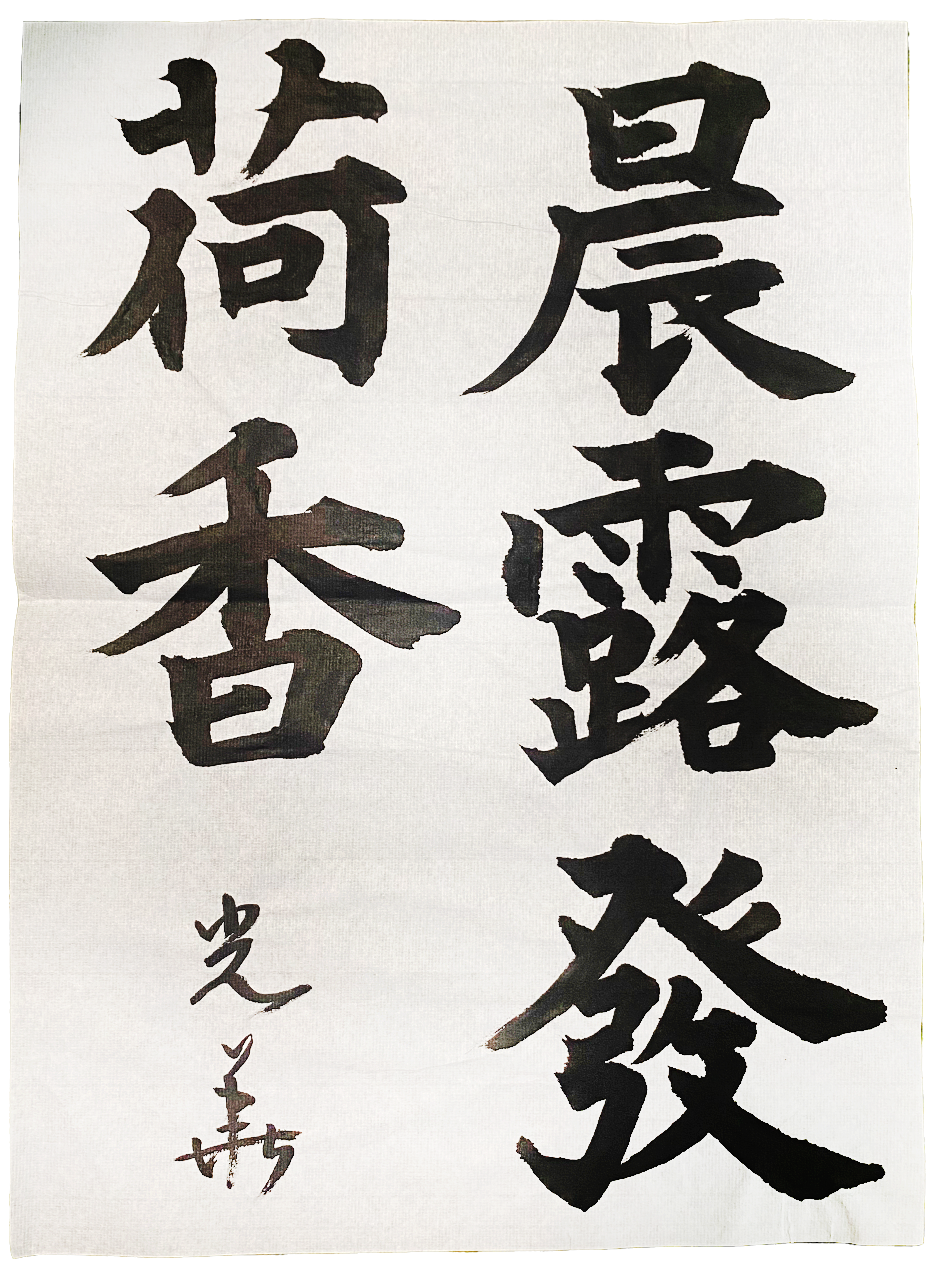 晨露發
荷香
光華